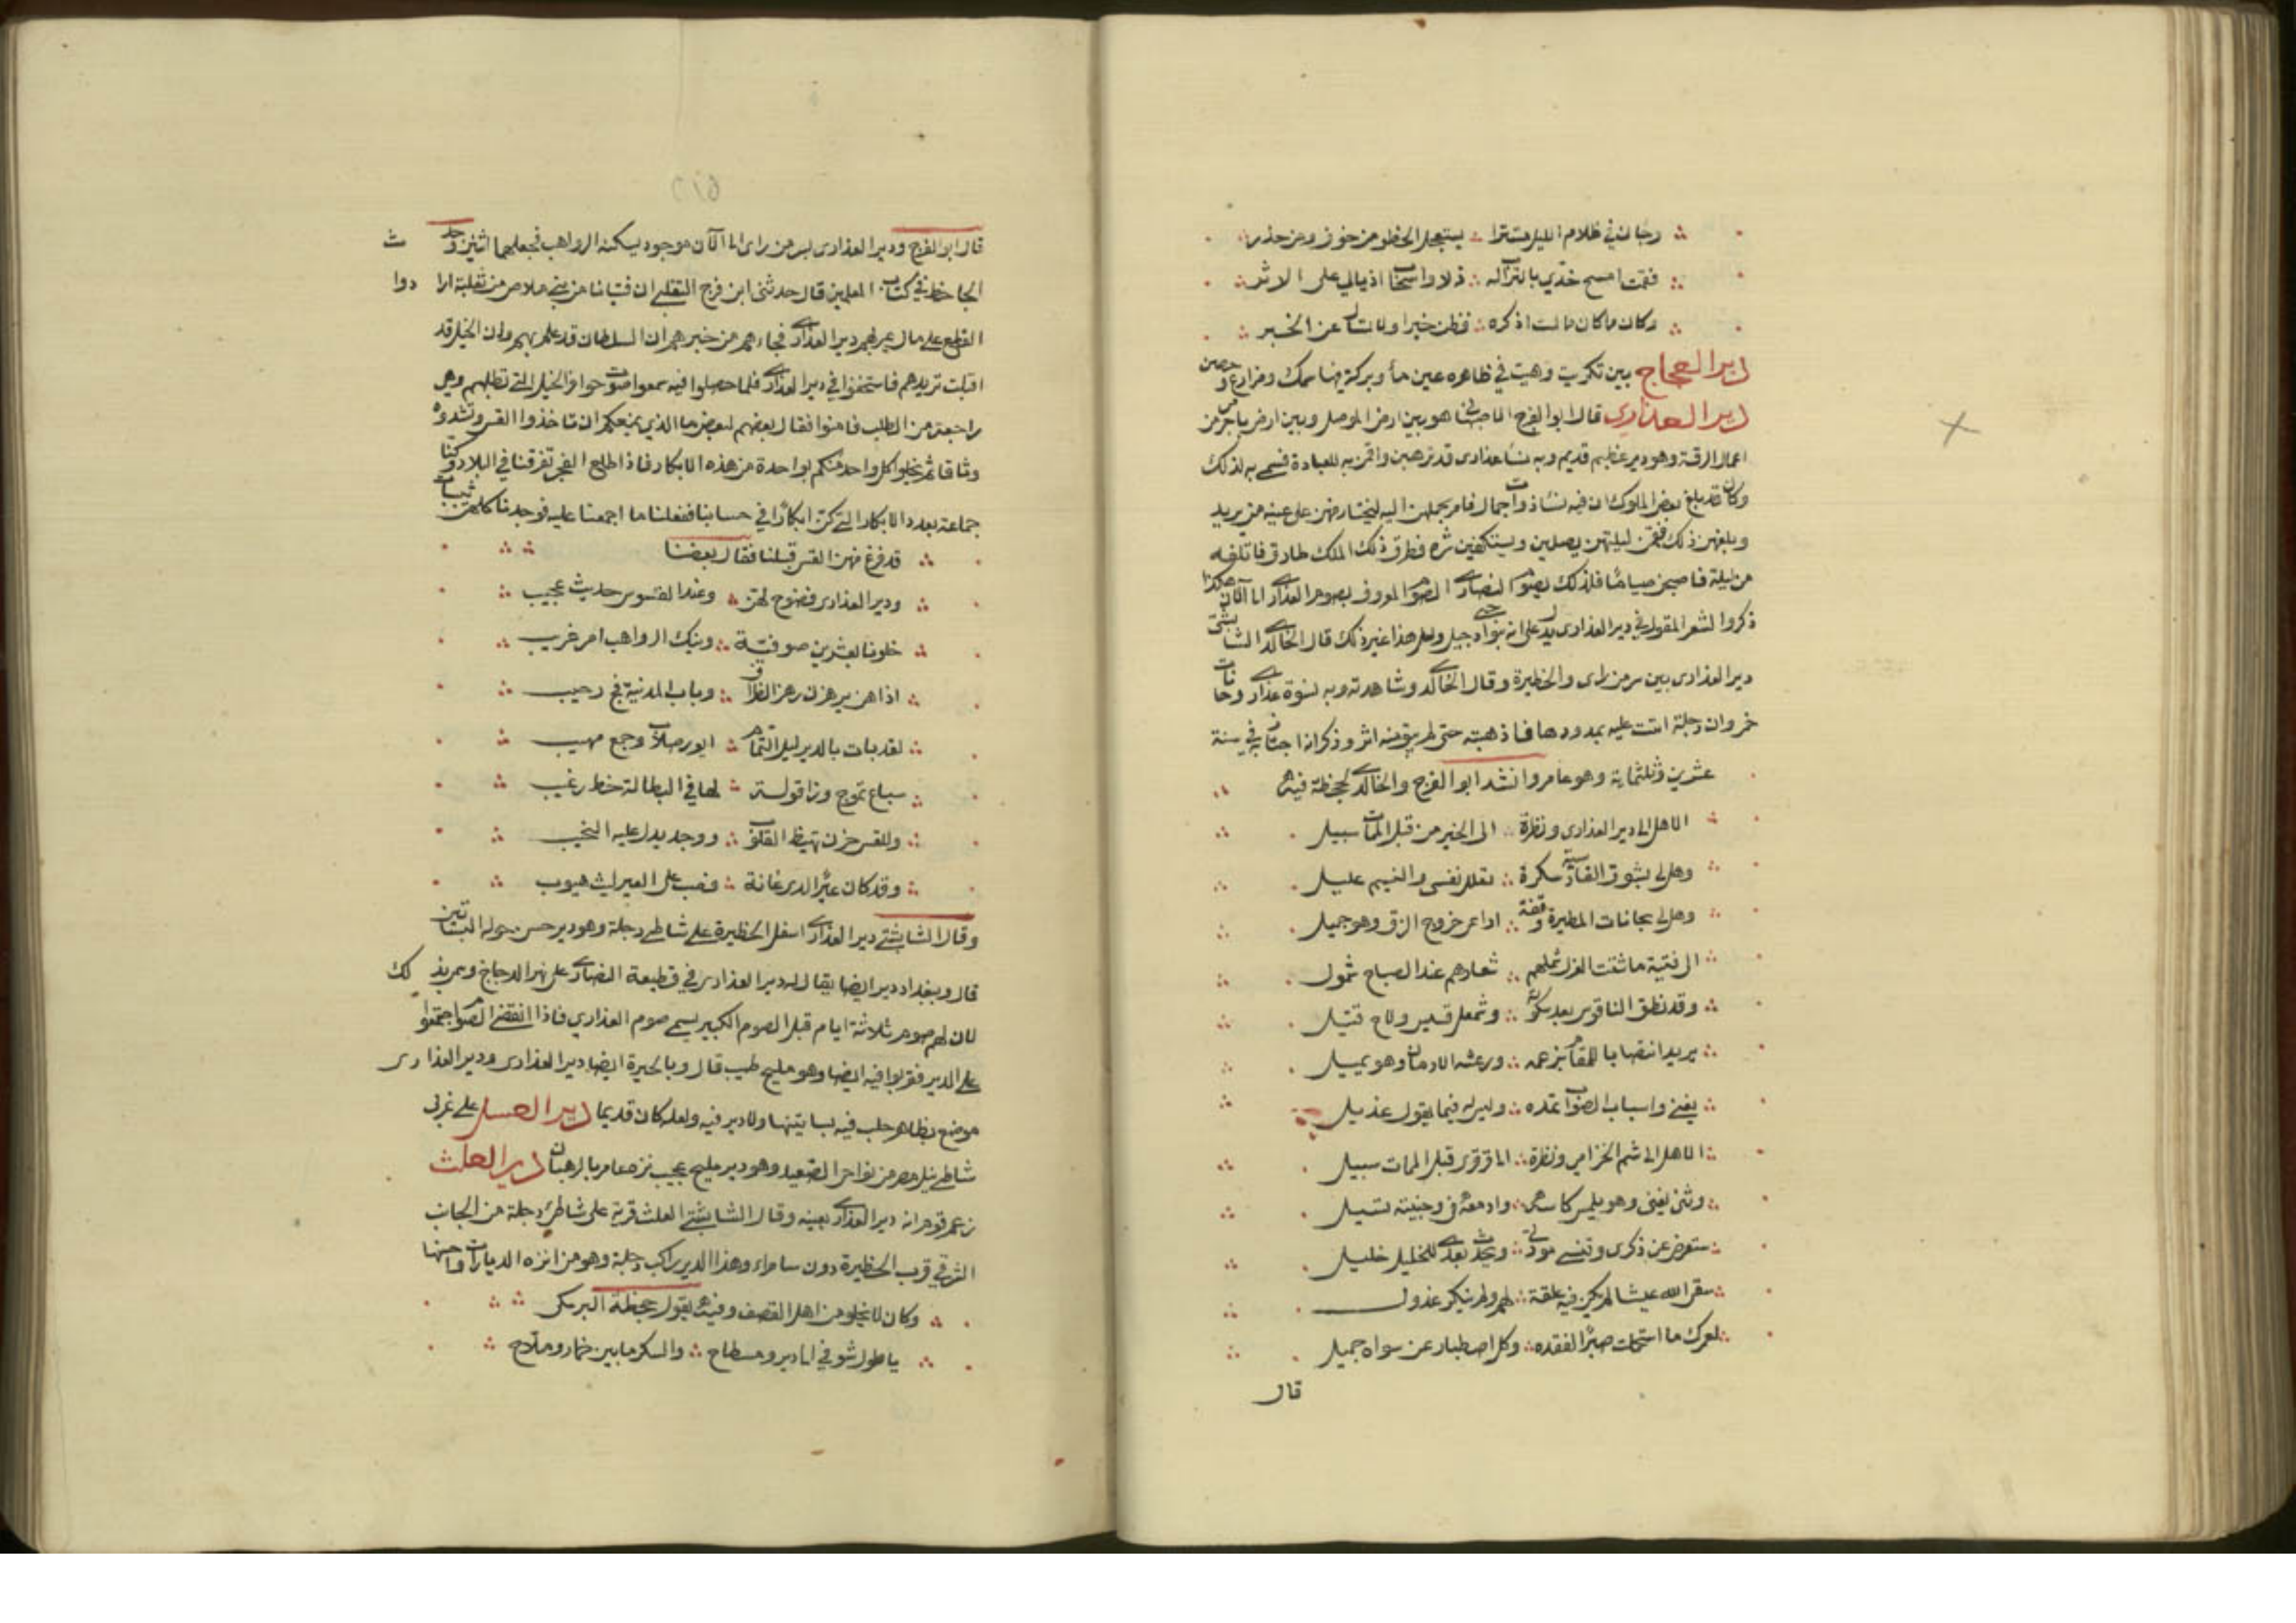 وجاني في ظلام الليل مستترا ∴ يستعجل الخطو من خوف ومن حذر
فقمت امسح خدي بالتراب له ∴ ذلا واسحب اذيالي على الاثر
وكان ما كان مما لست اذكره ∴ فظن خيرا ولا تسال عن الخبر
دير العجاج بين تكريت وهيت في ظاهره عين ماء وبركة فيها سمك ومزارع وحصن
دير العذارى قال ابو الفرج الاصبهاني هو بين ارض الموصل وبين ارض باجرمى من
اعمال الرقة وهو دير عظيم قديم وبه نساء عذارى قد ترهبن واقمن به للعبادة فسمي به لذلك
وكان قد بلغ بعض الملوك ان فيه نساء ذوات جمال فامر بحملهن اليه ليختار منهن على عينه من يريد
وبلغهن ذلك فقمن ليلتهن يصلين ويستكفين شره فطرق ذلك الملك طارق فاتلفه
من ليلته فاصبحن صياما فلذلك يصوم النصارى الصوم المعروف بصوم العذارى الى الآن هكذا
ذكروا الشعر المقول في دير العذارى يدل على انه بنواحي دجيل ولعل هذا غير ذلك قال الخالدي الشابشتي
دير العذارى بين سر من راى والحظيرة وقال الخالدي وشاهدته وبه نسوة عذارى وحانات
خمر وان دجلة اتت عليه بمدودها فاذهبته حتى لم يبق منه اثر وذكر انه اجتاز به في سنة
عشرين وثلثماية وهو عامر وانشد ابو الفرج والخالدي لجحظة فيه
الا هل الى دير العذارى ونظرة ∴ الى الخير من قبل الممات سبيل
وهل لي بسوق القادسية سكرة ∴ تعلل نفسي والنسيم عليل
وهل لي بحانات المطيرة وقفة ∴ اراعي خروج الزق وهو حميل
الى فتية ما شتت العزل شملهم ∴ شعارهم عند الصباح شمول
وقد نطق الناقوس بعد سكوته ∴ وشمعل قسيس ولاح فتيل
يريد انتصابا للمقام بزعمه ∴ ويرعشه الادمان وهو يميل
يغني واسباب الصواب تمده ∴ وليس له فيما يقول عذيل
الا هل الى شم الخزامى ونظرة ∴ الى قرقرى قبل الممات سبيل
وثنى يغني وهو يلمس كاسه ∴ وادمعه في وجنتيه تسيل
ستعرض عن ذكري وتنسى مودتي ∴ ويحدث بعدي للخليل خليل
سقى الله عيشا لم يكن فيه علقة ∴ لهم ولم ينكر عذول
لعمرك ما استحملت صبرا لفقده ∴ وكل اصطبار عن سواه جميل
قال
قال ابو الفرج ودير العذارى بسر من راى الى الآن موجود يسكنه الرواهب فجعلهما اثنين وحدث
الجاحظ في كتاب المعلمين قال حدثني ابن فرج الثعلبي ان فتيانا من بني ملاص من ثعلبة ارادوا
القطع على مال يمر بهم دير العذارى فجاءهم من خبرهم ان السلطان قد علم بهم وان الخيل قد
اقبلت تريدهم فاستخفوا في دير العذارى فلما حصلوا فيه سمعوا اصوات حوافر الخيل التي تطلبهم وهي
راجعة من الطلب فامنوا فقال بعضهم لبعض ما الذي يمنعكم ان تاخذوا القس وتشدوه
وثاقا ثم يخلوا كل واحد منكم بواحدة من هذه الابكار فاذا طلع الفجر تفرقنا في البلاد وكنا
جماعة بعدد الابكار التي كن ابكارا في حسابنا ففعلنا ما اجمعنا عليه فوجدنا كلهن ثيبات
قد فرغ منهن القس قبلنا فقال بعضنا
ودير العذارى فضوح لهن ∴ وعند القسوس حديث عجيب
خلونا بعشرين صوفية ∴ ونيك الرواهب امر غريب
اذا هن يرهزن رهز الظراف ∴ وباب المدينة فج رحيب
لقد بات بالدير ليل التمام ∴ ايور صلاب وجمع مهيب
سباع تموج وزاقولت ∴ لها في البطالة حظ رغيب
وللقس حزن تهيظ القلوب ∴ ووجد يدل عليه النحيب
وقد كان عيرا لدى عانة ∴ فصب على العير ليث هيوب
وقال الشابشتي دير العذارى اسفل الحظيرة على شاطئ دجلة وهو دير حسن حوله البساتين
قال وببغداد دير ايضا يقال له دير العذارى في قطيعة النصارى على نهر الدجاج وسمي بذلك
لان لهم صوم ثلاثة ايام قبل الصوم الكبير يسمى صوم العذارى فاذا انقضى الصوم اجتمعوا
على الدير فتقربوا فيه ايضا وهو مليح طيب قال وبالحيرة ايضا دير العذارى ودير العذارى
موضع بظاهر حلب فيه بساتينها ولا دير فيه ولعله كان قديما دير العسل على غربي
شاطئ نيل مصر من نواحي الصعيد وهو دير مليح عجيب نزه عامر بالرهبان دير العلث
زعم قوم انه دير العذارى بعينه وقال الشابشتي العلث قرية على شاطئ دجلة من الجانب
الشرقي قرب الحظيرة دون سامراء وهذا الدير راكب دجلة وهو من انزه الديارات واحسنها
وكان لا يخلو من اهل القصف وفيه يقول جحظة البرمكي
يا طول شوقي الى دير ومسطاح ∴ والسكر ما بين خمار وملاح